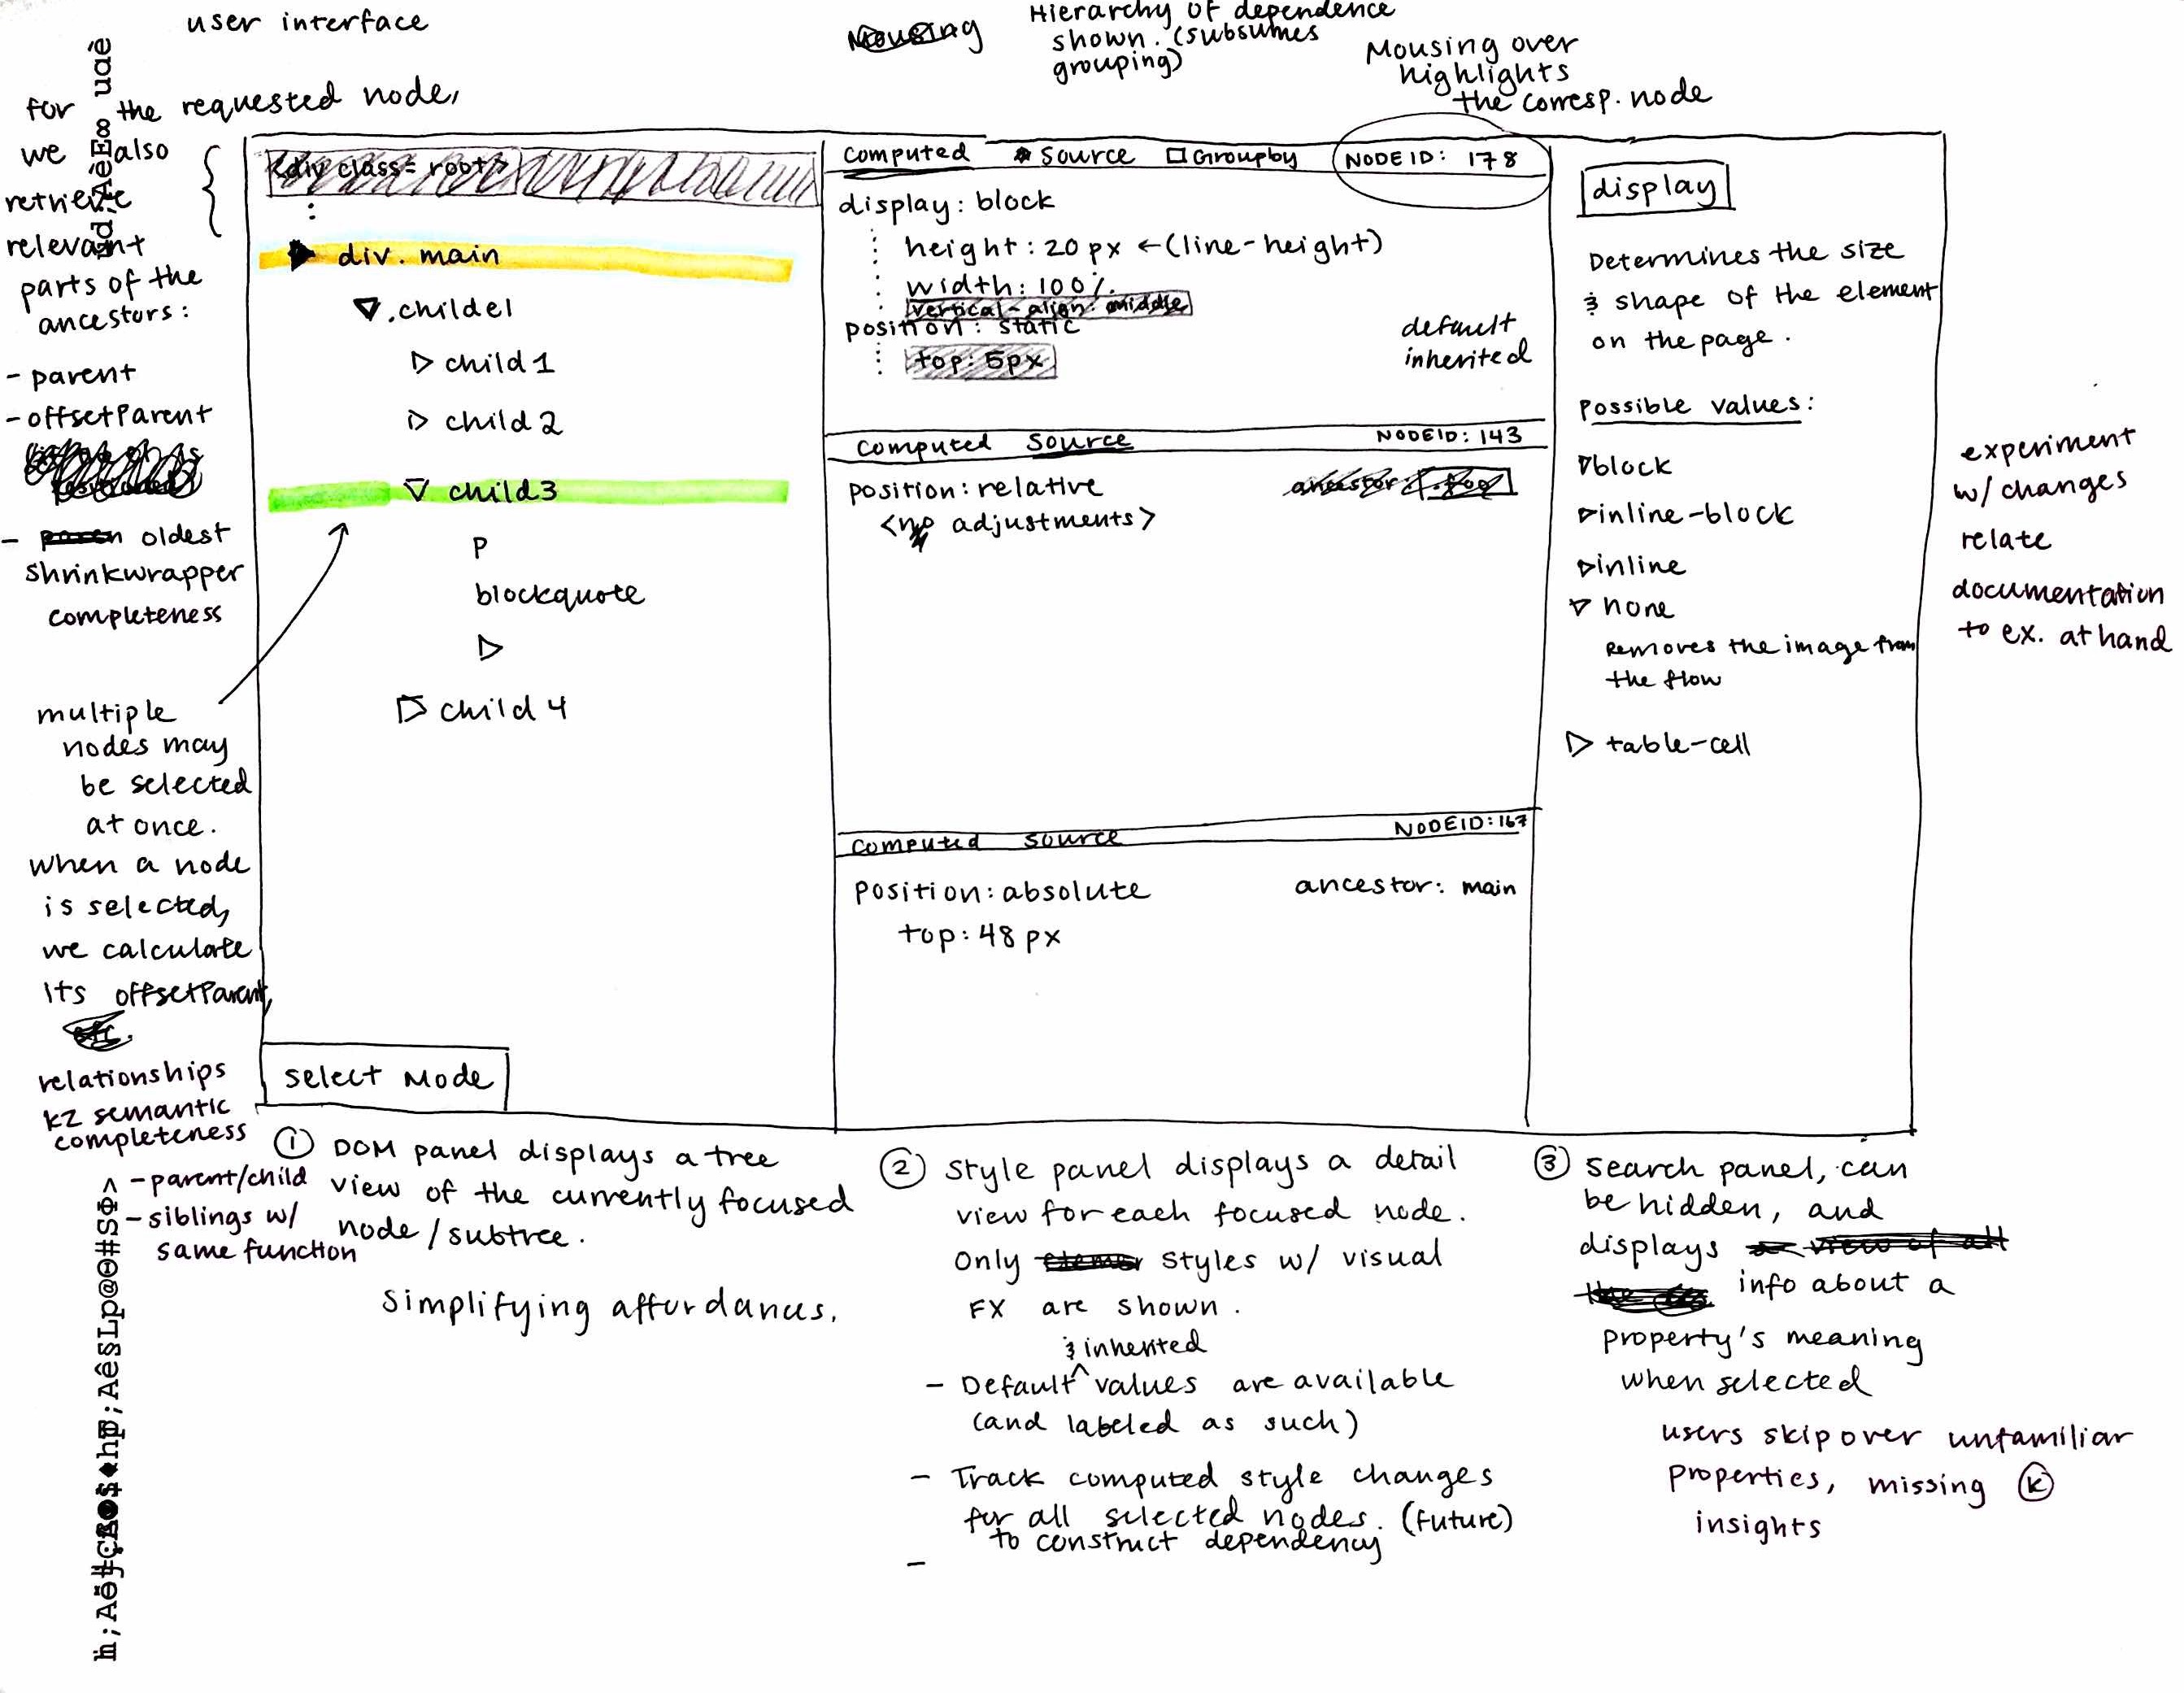 user interface
Mousing
Hierarchy of dependence
shown. (subsumes
grouping)
Mousing over
highlights
the corresp. node
for the requested node,
we also
retrieve
relevant
parts of the
ancestors:
- parent
- offsetParent
- oldest
shrinkwrapper
completeness
multiple
nodes may
be selected
at once.
when a node
is selected,
we calculate
its offsetParent,
etc.
relationships
k2 semantic
completeness
- parent/child
- siblings w/
same function
<div class= root>
div. main
.childel
child1
child2
child3
p
blockquote
child 4
select Mode
Computed Source Groupby NODE ID: 178
display: block
height: 20 px ← (line-height)
width: 100%
vertical-align: middle
position: static
top: 5px
default
inherited
Computed Source NODEID: 143
position: relative
ancestor: .foo
<no adjustments>
Computed Source NODEID: 167
Position: absolute ancestor: main
top: 48 px
display
Determines the size
& shape of the element
on the page.
Possible values:
block
inline-block
inline
none
Removes the image from
the flow
table-cell
experiment
w/ changes
relate
documentation
to ex. at hand
① DOM panel displays a tree
view of the currently focused
node / subtree.
Simplifying affordances.
② Style panel displays a detail
view for each focused node.
Only styles w/ visual
FX are shown.
& inherited
- Default ^ values are available
(and labeled as such)
- Track computed style changes
for all selected nodes. (future)
to construct dependency
-
③ search panel, can
be hidden, and
displays view of all
info about a
property's meaning
when selected
users skip over unfamiliar
properties, missing Ⓚ
insights